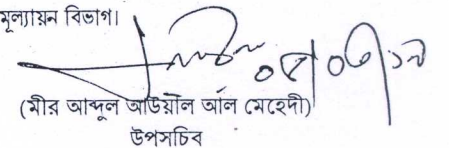 মূল্যায়ন বিভাগ।
(মীর আব্দুল আউয়াল আল মেহেদী)
উপসচিব